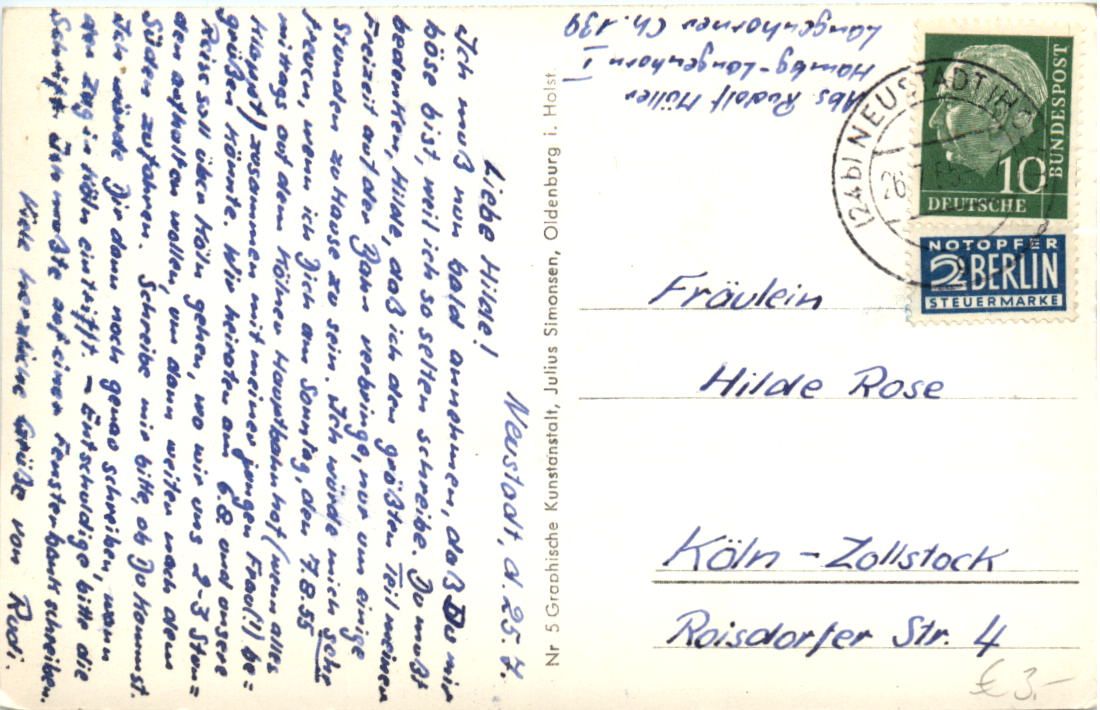 Neustadt, d. 25. 7.
Liebe Hilde!
Ich muß nun bald annehmen, daß Du mir
böse bist, weil ich so selten schreibe. Du mußt
bedenken, Hilde, daß ich den größten Teil meiner
Freizeit auf der Bahn verbringe, nur um einige
Stunden zu Hause zu sein. Ich würde mich sehr
freuen, wenn ich Dich am Sonntag, den 7.8.55
mittags auf dem Kölner Hauptbahnhof (wenn alles
klappt) zusammen mit meiner jungen Frau(!) be=
grüßen könnte. Wir heiraten am 6.8. und unsere
Reise soll über Köln gehen, wo wir uns 2-3 Stun=
den aufhalten wollen, um dann weiter nach dem
Süden zu fahren. Schreibe mir bitte, ob Du kommst.
Ich würde Dir dann noch genau schreiben, wann
der Zug in Köln eintrifft. – Entschuldige bitte die
Schrift. Ich mußte auf einer Fensterbank schreiben.
Viele herzliche Grüße von Rudi.
Nr 5 Graphische Kunstanstalt, Julius Simonsen, Oldenburg i. Holst.
Abs. Rudolf Müller
Hambg-Langenhorn I
Langenhorner Ch. 139
(24b) NEUSTADT (HOLST)
26.
BUNDESPOST
10
DEUTSCHE
NOTOPFER
2 BERLIN
STEUERMARKE
Fräulein
Hilde Rose
Köln - Zollstock
Roisdorfer Str. 4
€ 3.-